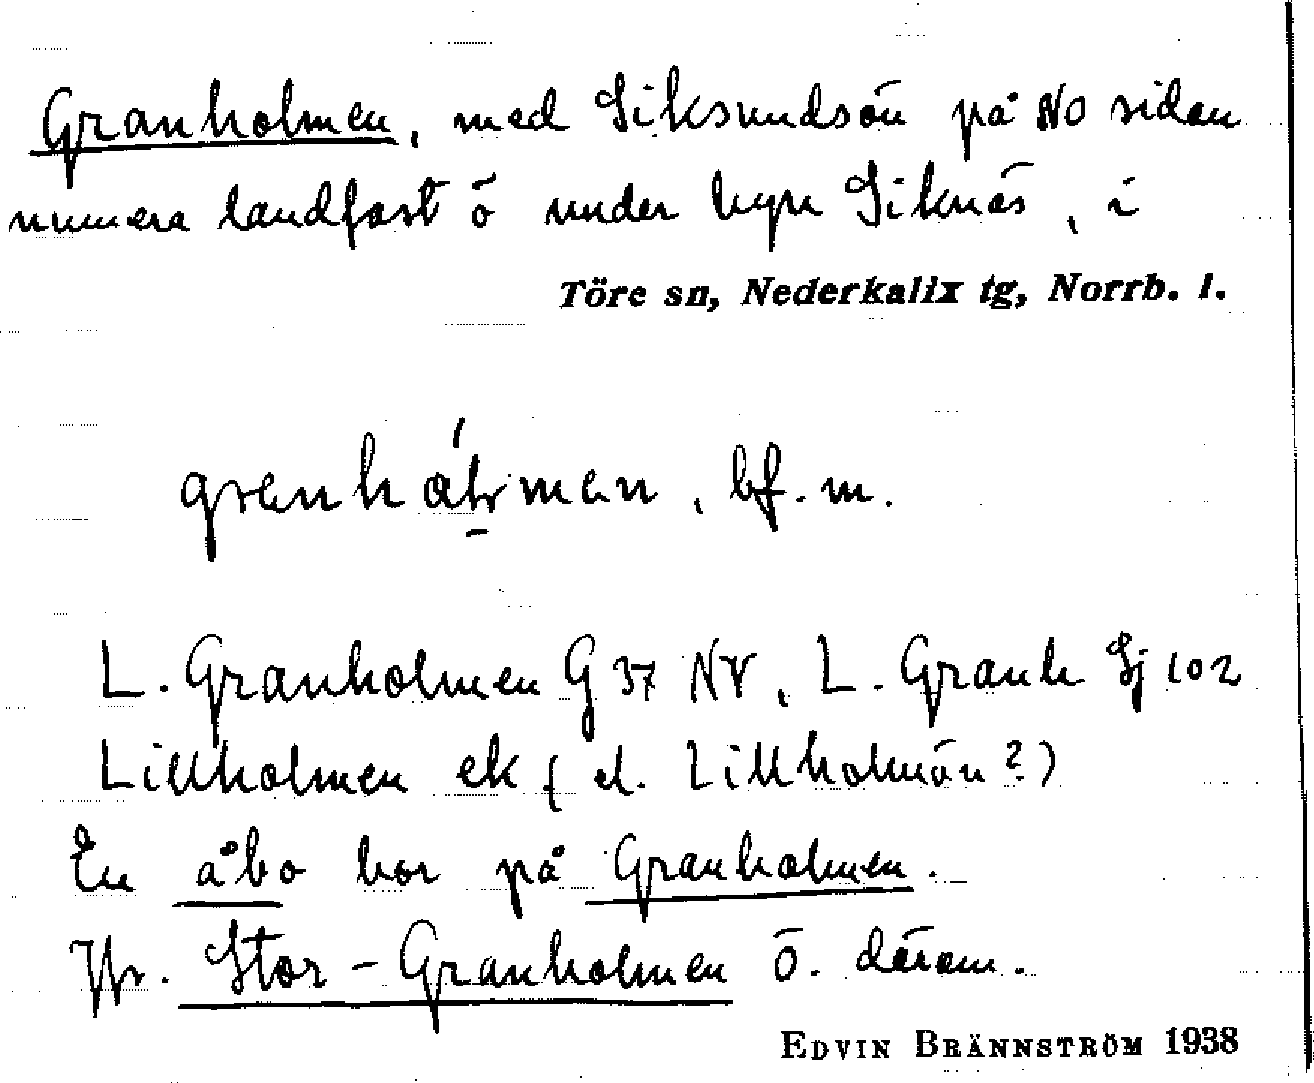 Granholmen, med Siksundsön på NO sidan
numera landfast ö under byn Siknäs, i
Töre sn, Nederkalix tg, Norrb. l.
bf. m.
L. Granholmen G 37 NV, L. Granh Sj 102
Lillholmen ek (el. Lillholmön?)
En åbo bor på Granholmen.
Jfr. Stor-Granholmen Ö. därom.
EDVIN BRÄNNSTRÖM 1938